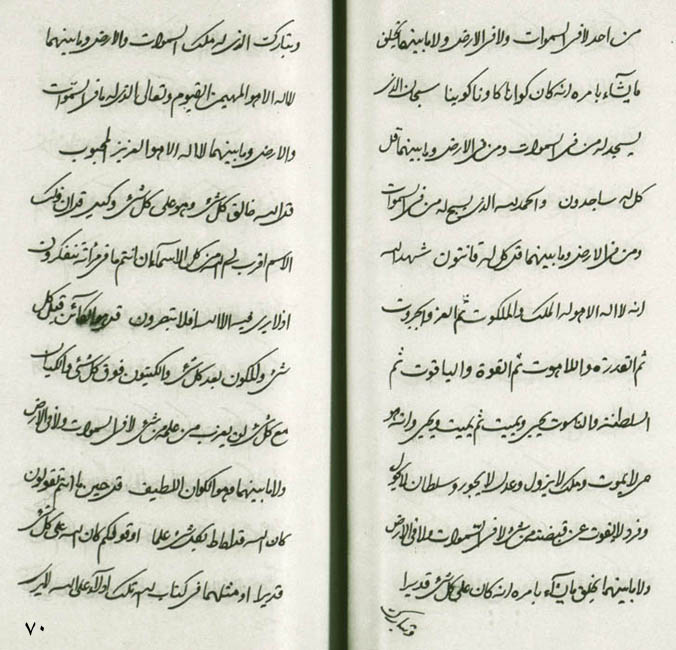 من احد لا في السموات ولا في الارض ولا ما بينهما يخلق
ما يشاء بامره انه كان كوانا كاونا كوينا سبحان الذي
يسجد له من في السموات ومن في الارض وما بينهما قل
كل له ساجدون والحمد لله الذي يسبح له من في السموات
ومن في الارض وما بينهما قل كل له قانتون شهد الله
انه لا اله الا هو له الملك والملكوت ثم العز والجبروت
ثم القدرة واللاهوت ثم القوة والياقوت ثم
السلطنة والناسوت يحيي ويميت ثم يميت ويحيي وانه هو
حي لا يموت وملك لا يزول وعدل لا يجور وسلطان لا يحول
وفرد لا يفوت عن قبضته من شيء لا في السموات ولا في الارض
ولا ما بينهما يخلق ما يشاء بامره انه كان على كل شيء قديرا
وتبارك الذي له ملك السموات والارض وما بينهما
لا اله الا هو المهيمن القيوم وتعالى الذي له ما في السموات
والارض وما بينهما لا اله الا هو العزيز المحبوب
قل الله خالق كل شيء وهو على كل شيء وكيل قل ان ذلك
الاسم اقرب من كل الاسماء ان انتم ما فيه تتفكرون
اذ لا يرى فيه الا الله افلا تبصرون قل هو الكائن قبل كل
شيء والمكون بعد كل شيء والكينون فوق كل شيء والكيان
مع كل شيء لن يعزب من علمه من شيء لا في السموات ولا في الارض
ولا ما بينهما وهو الكوان اللطيف قل حين ما انتم تقولون
كان الله قد احاط بكل شيء علما او قولكم كان الله على كل شيء
قديرا او مثلهما في كتاب الله تلك ادلاء على الله
٧٠